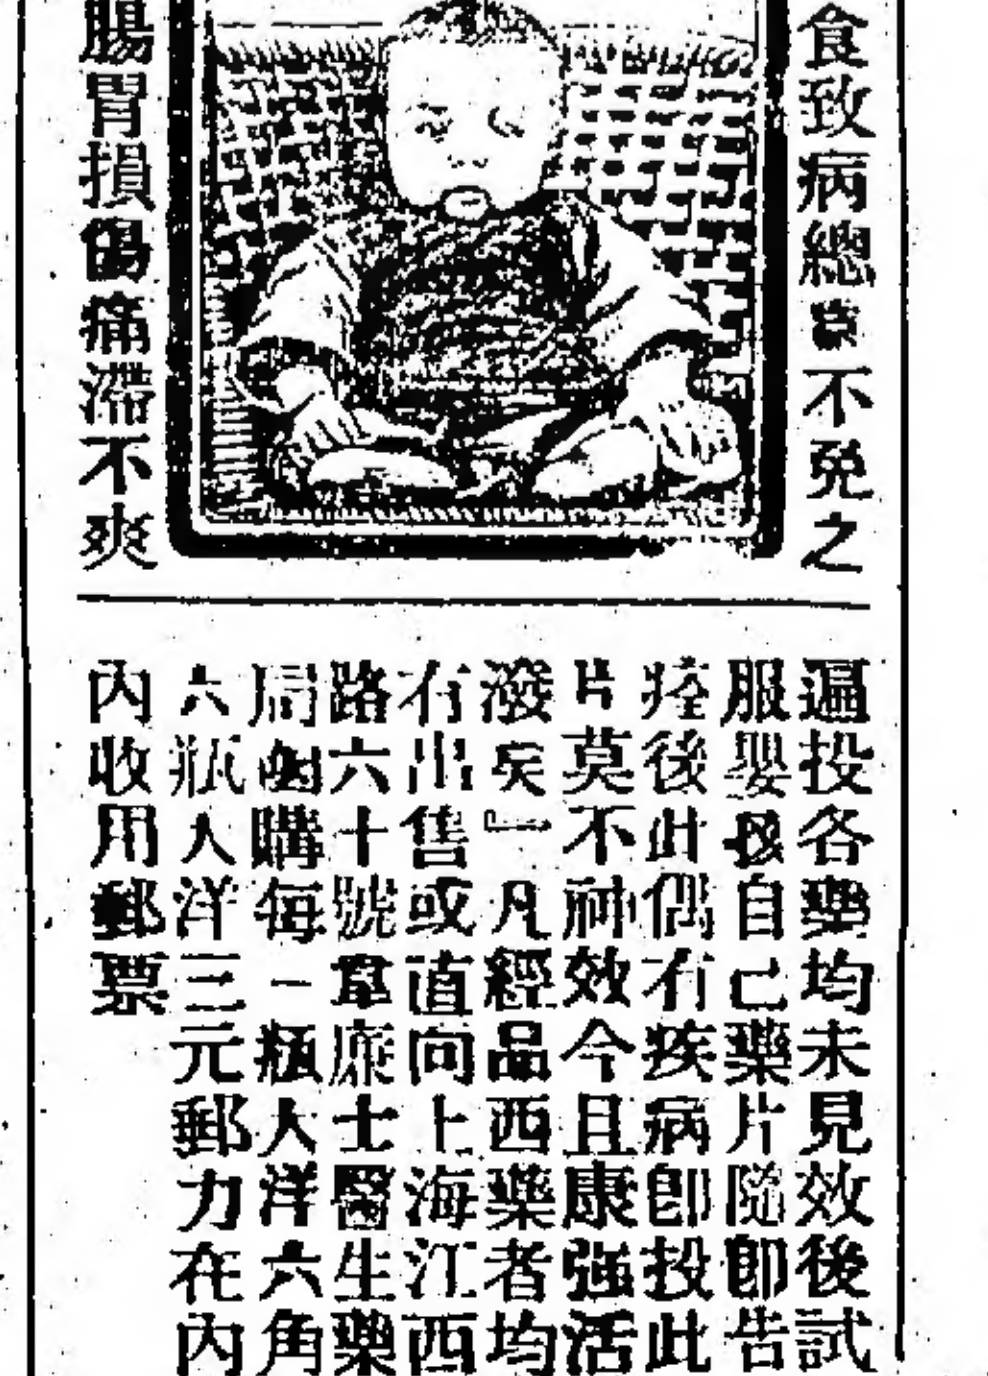 食致病總不免之
腸胃損傷痛滯不爽
遍投各藥均未見效後試
服嬰孩自己藥片隨即告
痊後此偶有疾病即投此
片莫不神效今且康强活
潑矣』凡經品西藥者均
有出售或直向上海江西
路六十號韋廉士醫生藥
局函購每一瓶大洋六角
六瓶大洋三元郵力在內
內收用郵票